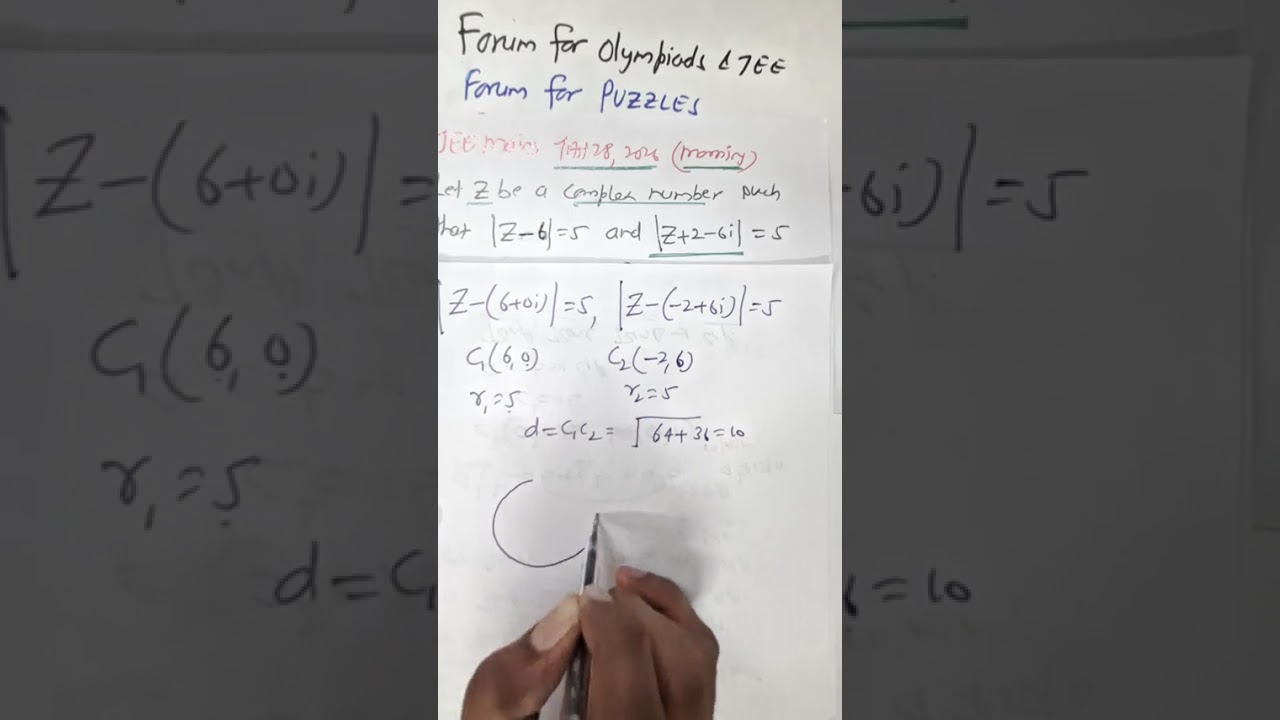 Forum for Olympiads & JEE
Forum for PUZZLES
JEE mains JAN 28, 2026 (morning)
Let Z be a complex number such
that |Z-6|=5 and |Z+2-6i|=5
|Z-(6+0i)|=5, |Z-(-2+6i)|=5
C₁(6,0) C₂(-2,6)
r₁=5 r₂=5
d=C₁C₂= √64+36=10
|Z-(6+0i)|= -6i)|=5
C₁(6,0)
r₁=5
d=C₁ =10